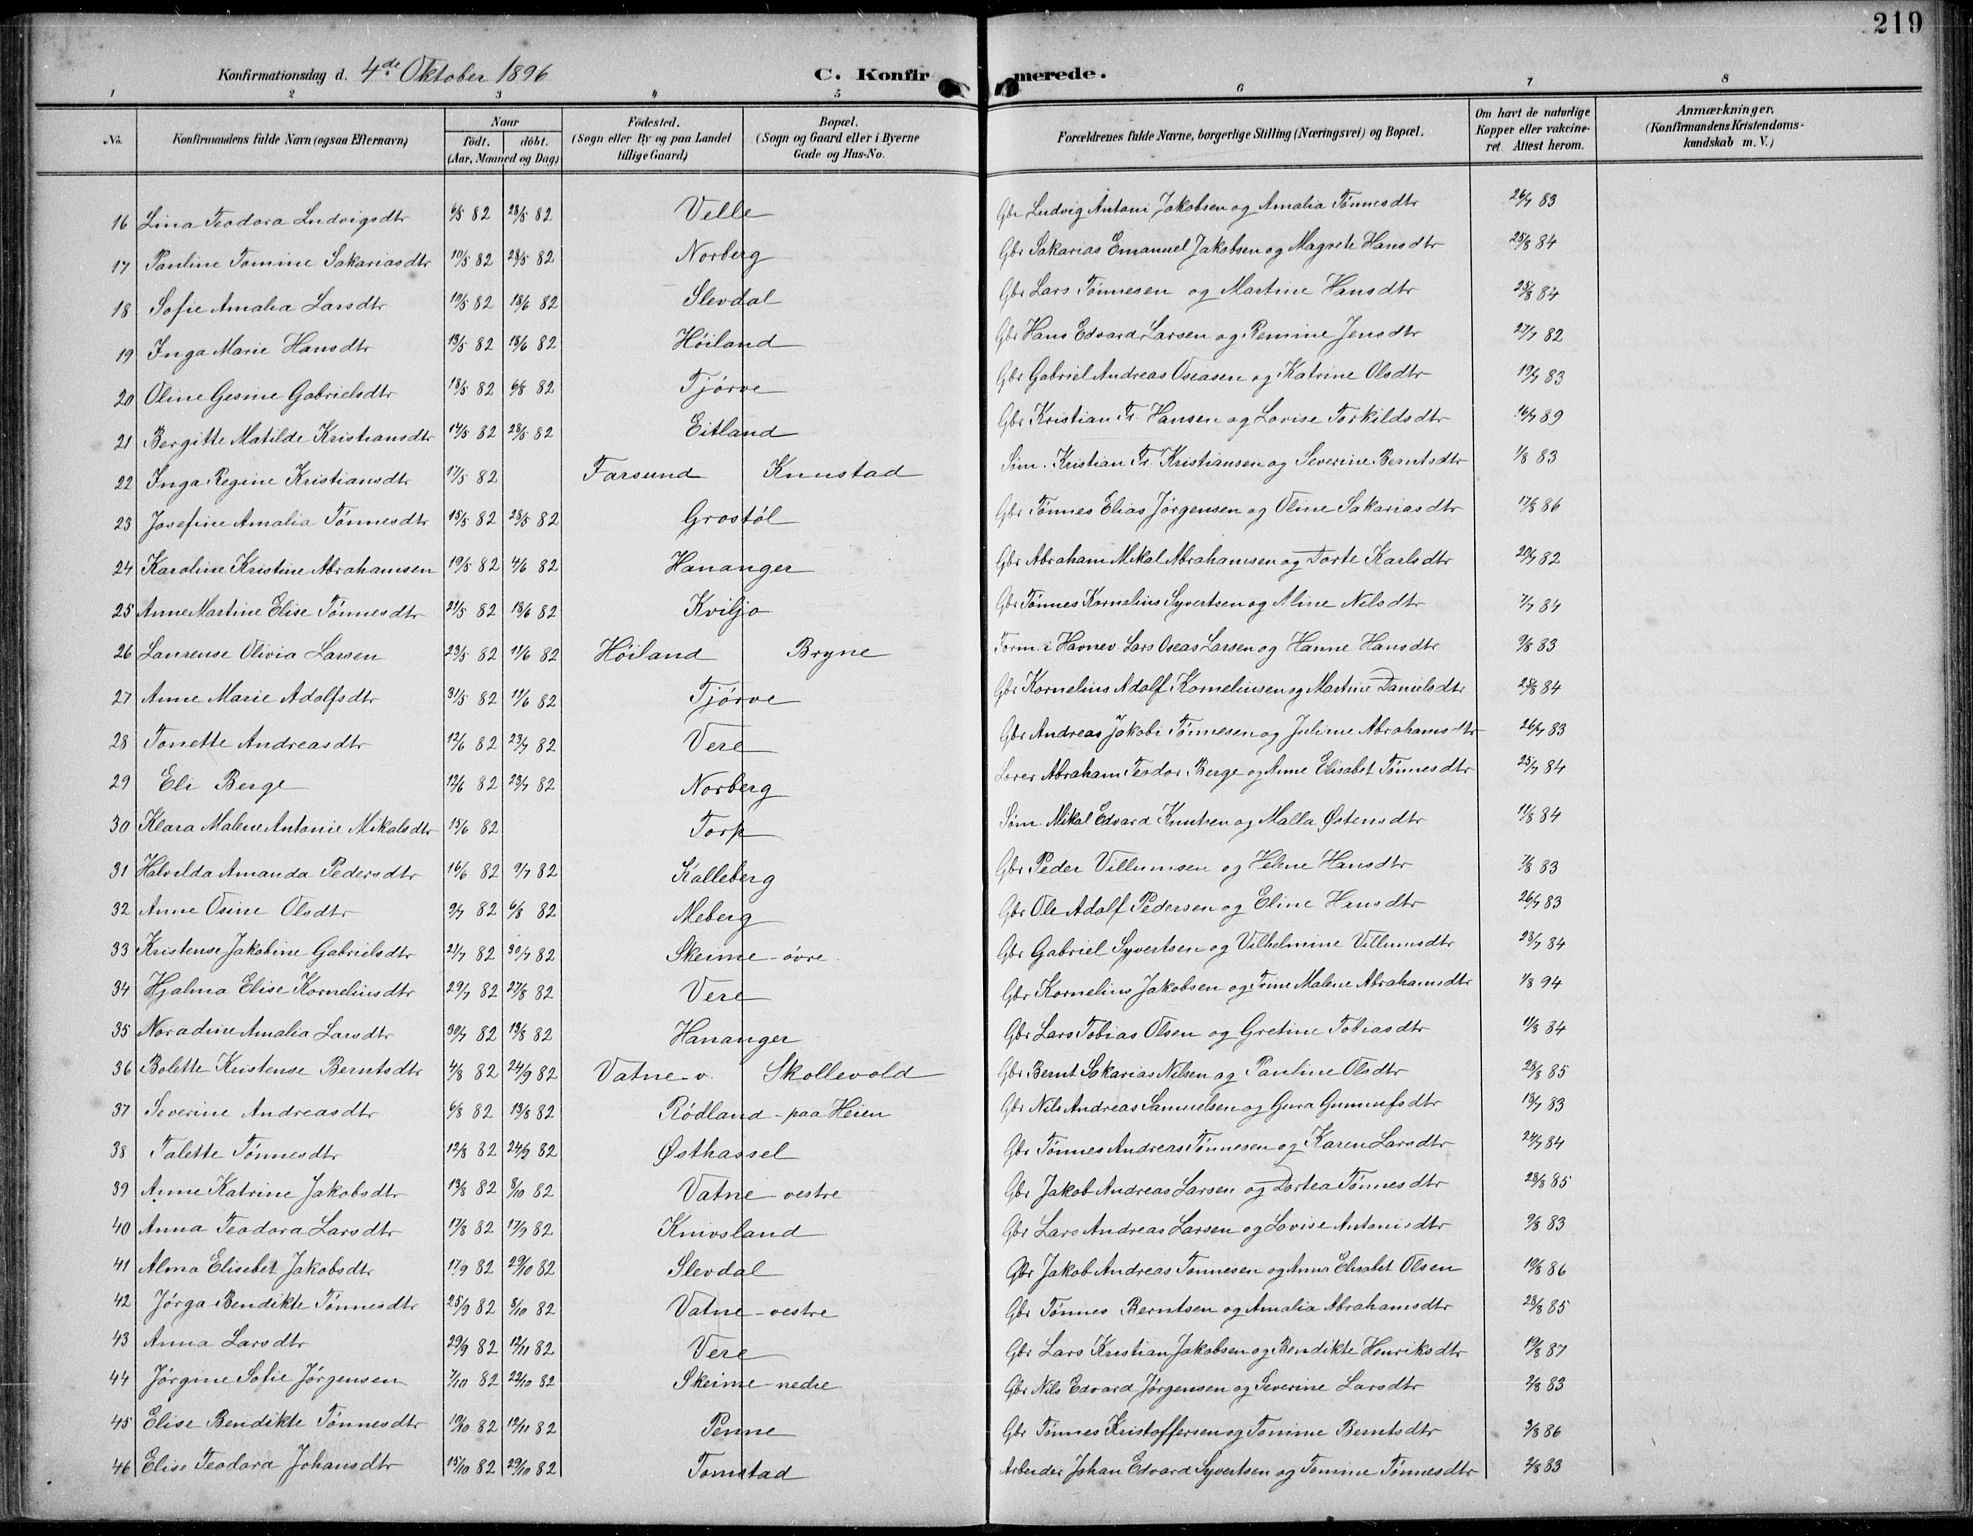 219
Konfirmationsdag d. 4de Oktober 1896 C. Konfirmerede.
1 2 3 4 5 6 7 8
No. Konfirmandens fulde Navn (ogsaa Efternavn) Naar født. døbt. (Aar, Maaned og Dag) Fødested. (Sogn eller By og paa Landet tillige Gaard) Bopæl. (Sogn og Gaard eller i Byerne Gade og Hus-No. Forældrenes fulde Navne, borgerlige Stilling (Næringsvei) og Bopæl. Om havt de naturlige Kopper eller vakcineret Attest herom. Anmærkninger. (Konfirmandens Kristendomskundskab m. V.)
16 Lina Teodora Ludvigsdtr 6/5 82 28/5 82 Velle Gbr Ludvig Antoni Jakobsen og Amalia Tønnesdtr 26/7 83
17 Pauline Tomine Sakariasdtr 10/5 82 28/5 82 Norberg Gbr Sakarias Emanuel Jakobsen og Magrete Hansdtr 25/8 84
18 Sofie Amalia Larsdtr 10/5 82 18/6 82 Slevdal Gbr Lars Tønnesen og Martine Hansdtr 25/8 84
19 Inga Marie Hansdtr 13/5 82 18/6 82 Høiland Gbr Hans Edvard Larsen og Remine Jensdtr 27/7 82
20 Oline Gesine Gabrielsdtr 18/5 82 6/8 82 Tjørve Gbr Gabriel Andreas Oseasen og Katrine Olsdtr 19/7 83
21 Bergitte Matilde Kristiansdtr 14/5 82 28/5 82 Eitland Gbr Kristian Fr. Hansen og Lovise Torkildsdtr 16/7 89
22 Inga Regine Kristiansdtr 17/5 82 Farsund Knustad Søm. Kristian Fr. Kristiansen og Severine Berntsdtr 1/8 83
23 Josefine Amalia Tønnesdtr 15/5 82 28/5 82 Grostøl Gbr Tønnes Elias Jørgensen og Oline Sakariasdtr 17/8 86
24 Karoline Kristine Abrahamsen 19/5 82 4/6 82 Hananger Gbr Abraham Mikal Abrahamsen og Dorte Karlsdtr 20/7 82
25 Anne Martine Elise Tønnesdtr 21/5 82 18/6 82 Kviljo Gbr Tønnes Kornelius Syvertsen og Aline Nilsdtr 7/7 84
26 Laurense Olivia Larsen 23/5 82 11/6 82 Høiland Bryne Form. i Havnev. Lars Oseas Larsen og Hanne Hansdtr 9/8 83
27 Anne Marie Adolfsdtr 31/5 82 11/6 82 Tjørve Gbr Kornelius Adolf Korneliusen og Martine Danielsdtr 25/8 84
28 Tonette Andreasdtr 12/6 82 23/7 82 Vere Gbr Andreas Jakobi Tønnesen og Juline Abrahamsdtr 26/7 83
29 Eli Berge 12/6 82 23/7 82 Norberg Lærer Abraham Teodor Berge og Anne Elisabet Tønnesdtr 25/7 84
30 Klara Malene Antonie Mikalsdtr 15/6 82 Torp Søm. Mikal Edvard Knutsen og Malla Østensdtr 11/8 84
31 Halvilda Amanda Pedersdtr 16/6 82 9/7 82 Kalleberg Gbr Peder Villumsen og Helene Hansdtr 7/8 83
32 Anne Osine Olsdtr 9/7 82 6/8 82 Meberg Gbr Ole Adolf Pedersen og Eline Hansdtr 26/7 83
33 Kristense Jakobine Gabrielsdtr 21/7 82 30/7 82 Skeime-øvre. Gbr Gabriel Syvertsen og Vilhelmine Villumsdtr 23/7 84
34 Hjalma Elise Korneliusdtr 29/7 82 27/8 82 Vere Gbr Kornelius Jakobsen og Trine Malene Abrahamsdtr 1/8 94
35 Noradine Amalia Larsdtr 30/7 82 13/8 82 Hananger Gbr Lars Tobias Olsen og Gretine Tobiasdtr 11/8 84
36 Bolette Kristense Berntsdtr 4/8 82 24/9 82 Vatne-v. Skollevold Gbr Bernt Sakarias Nilsen og Pauline Olsdtr 28/8 85
37 Severine Andreasdtr 6/8 82 13/8 82 Rødland-paa Heien Gbr Nils Andreas Samuelsen og Gura Gunnufsdtr 13/7 83
38 Talette Tønnesdtr 12/8 82 24/9 82 Østhassel Gbr Tønnes Andreas Tønnesen og Karen Larsdtr 24/7 84
39 Anne Katrine Jakobsdtr 13/8 82 8/10 82 Vatne-vestre Gbr Jakob Andreas Larsen og Dortea Tønnesdtr 28/8 85
40 Anna Teodora Larsdtr 17/8 82 17/9 82 Knivsland Gbr Lars Andreas Larsen og Lovise Antonisdtr 9/8 83
41 Alma Elisebet Jakobsdtr 17/9 82 29/10 82 Slevdal Gbr Jakob Andreas Tønnesen og Anna Elisabet Olsen 19/8 86
42 Jørga Bendikte Tønnesdtr 25/9 82 8/10 82 Vatne-vestre Gbr Tønnes Berntsen og Amalia Abrahamsdtr 28/8 85
43 Anna Larsdtr 29/9 82 12/11 82 Vere Gbr Lars Kristian Jakobsen og Bendikte Henriksdtr 19/8 87
44 Jørgine Sofie Jørgensen 7/10 82 22/10 82 Skeime-nedre Gbr Nils Edvard Jørgensen og Severine Larsdtr 2/8 83
45 Elise Bendikte Tønnesdtr 10/10 82 12/11 82 Penne Gbr Tønnes Kristoffersen og Tomine Berntsdtr 3/8 86
46 Elise Teodora Johansdtr 15/10 82 29/10 82 Tomstad Arbeider Johan Edvard Syvertsen og Tomine Tønnesdtr 2/8 83